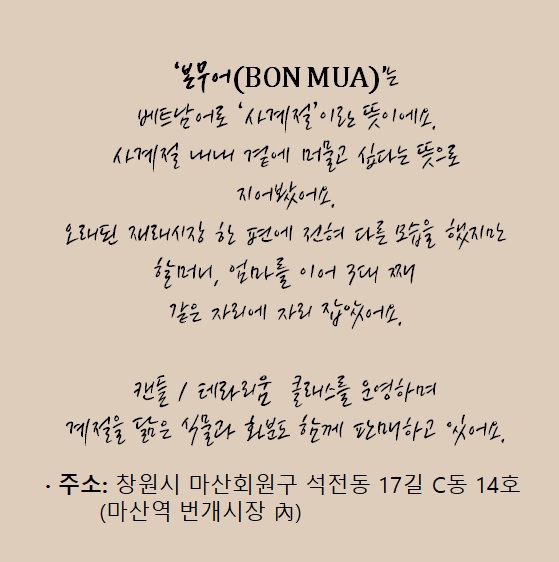 '본무어(BON MUA)'는
베트남어로 '사계절'이란 뜻이에요.
사계절 내내 곁에 머물고 싶다는 뜻으로
지어봤어요.
오래된 재래시장 한 편에 전혀 다른 모습을 했지만
할머니, 엄마를 이어 3대 째
같은 자리에 자리 잡았어요.
캔들 / 테라리움 클래스를 운영하며
계절을 닮은 식물과 화분도 함께 판매하고 있어요.
· 주소: 창원시 마산회원구 석전동 17길 C동 14호
(마산역 번개시장 內)